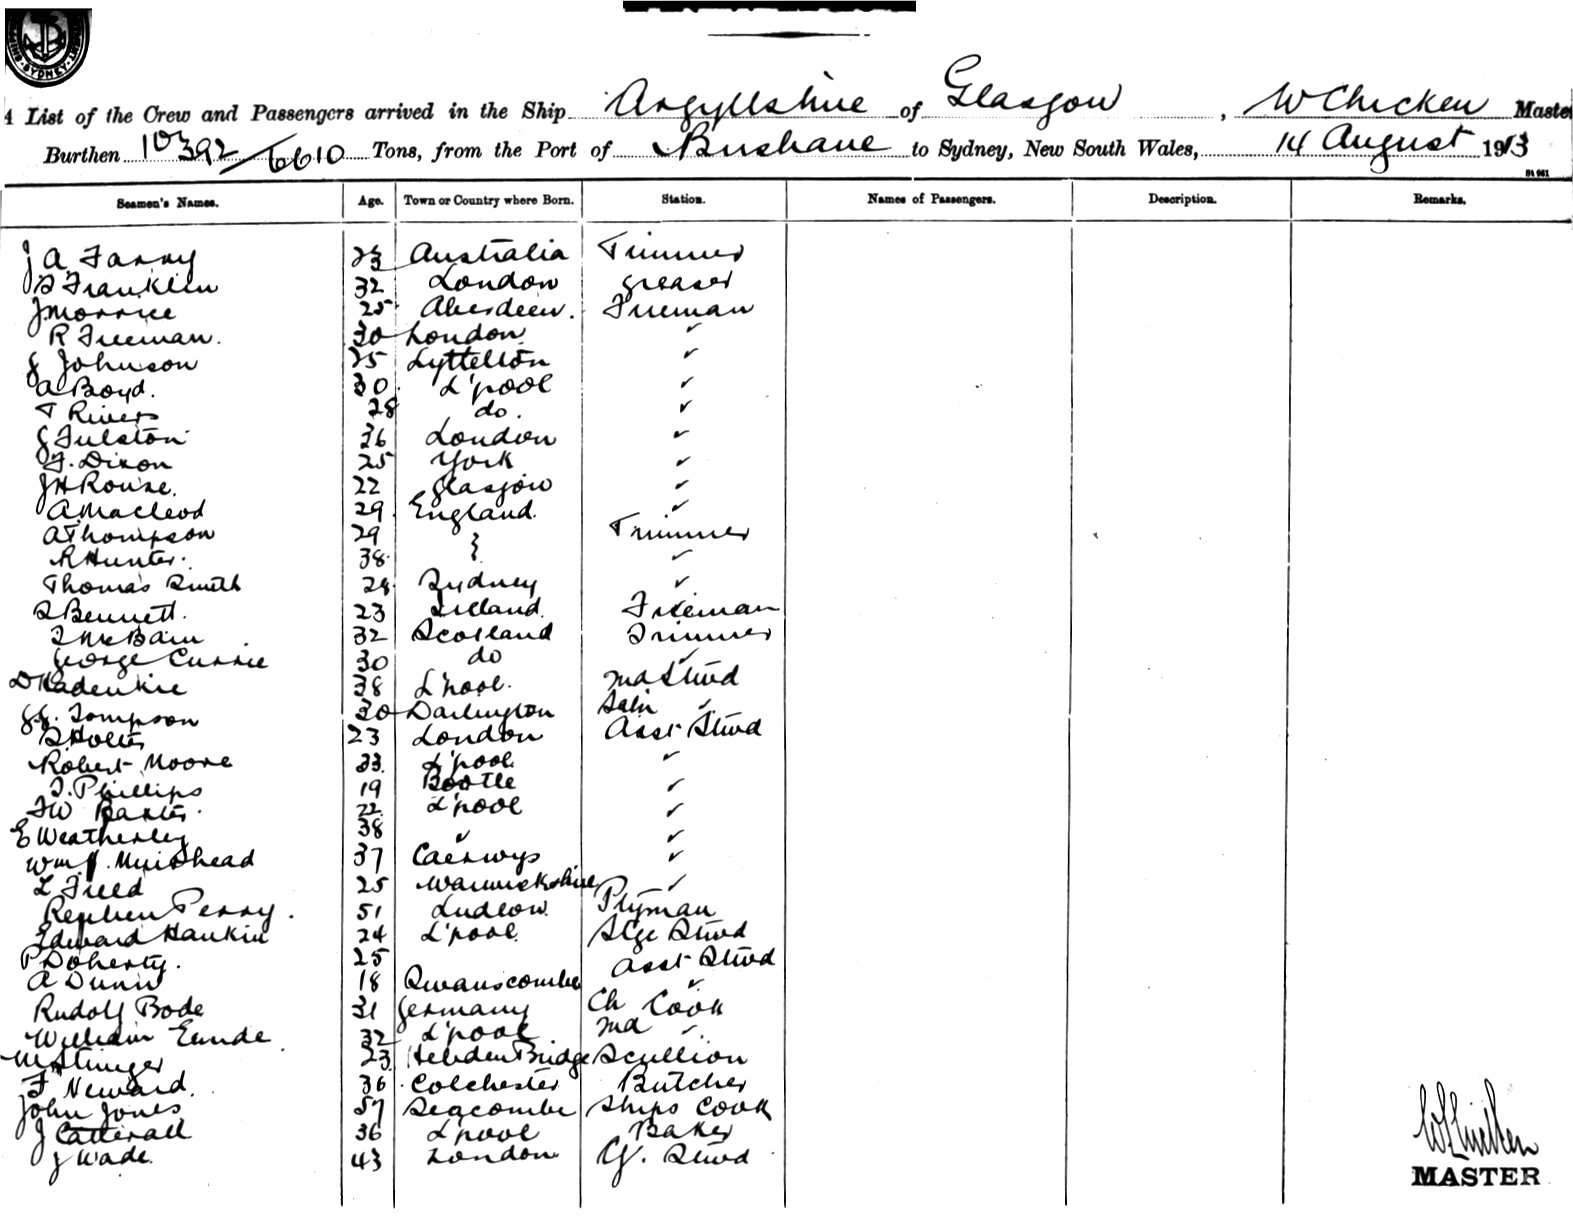 SYDNEY
A List of the Crew and Passengers arrived in the Ship Argyllshire of Glasgow, W Chicken Master
Burthen 10392/6610 Tons, from the Port of Brisbane to Sydney, New South Wales, 14 August 1913
Seamen's Names. Age. Town or Country where Born. Station. Names of Passengers. Description. Remarks.
J A Farry 23 Australia Trimmer
B Franklin 32 London Greaser
J Morrice 25 Aberdeen. Fireman
R Freeman. 30 London ✓
J Johnson 25 Lyttelton ✓
A Boyd. 30. L'pool ✓
T Rivers 28 do. ✓
J Fulston 26 London ✓
F. Dixon 25 York ✓
J H Rouse. 22 Glasgow ✓
A. Macleod 29. England. ✓
A Thompson 29 Trimmer
R Hunter. 38. ✓
Thomas Smith 28 Sydney ✓
S Bennett. 23 Ireland. Fireman
J McBain 32 Scotland Trimmer
George Currie 30 do ✓
38 L'pool. 2nd Stwd
J. Tompson 30 Darlington Saln ✓
S Holtes 23 London Asst Stwd
Robert Moore 33. L'pool. ✓
J. Phillips 19 Bootle ✓
F W Baxter. 22 L'pool ✓
E Weatherley 38 ✓ ✓
Wm J. Muirhead 37 Caerwys ✓
L Freed 25 Warwickshire ✓
Reuben Perry. 51 Ludlow. Ptyman
Edward Hankin 24 L'pool. Stge Stwd
P Doherty. 25 Asst Stwd
A Dunn 18 Swanscombe ✓
Rudolf Bode 31 Germany Ch Cook
William 32 L'pool 2nd ✓.
23 Hebden Bridge Scullion
F Neward. 36. Colchester Butcher
John Jones 57 Seacombe Ships Cook
J Catterall 36 L'pool Baker
J Wade. 43 London Cf. Stwd
W Chicken
MASTER